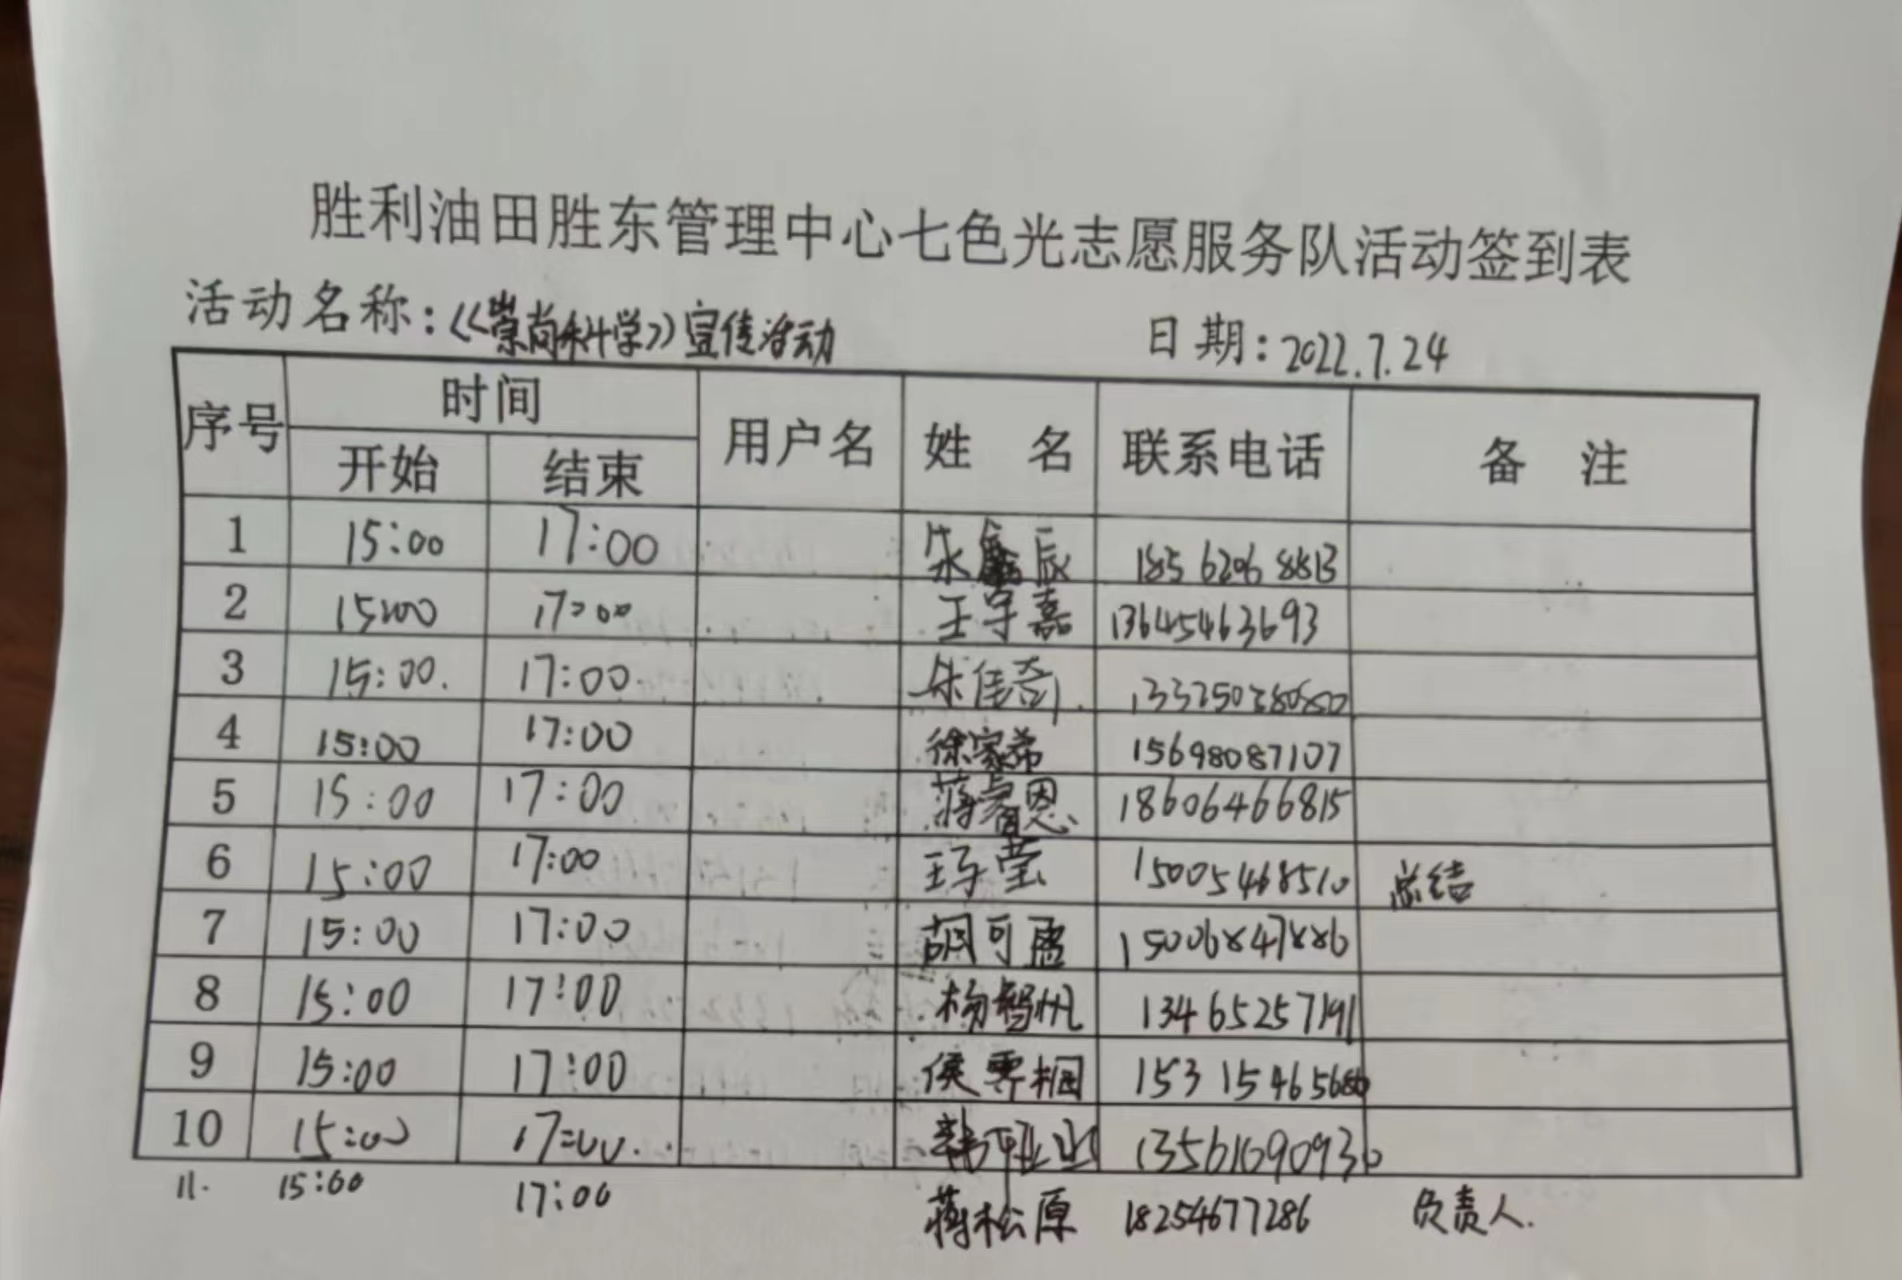 胜利油田胜东管理中心七色光志愿服务队活动签到表
活动名称:《崇尚科学》宣传活动 日期:2022.7.24
序号 时间 用户名 姓 名 联系电话 备 注
开始 结束
1 15:00 17:00 朱鑫辰 18562068813
2 15:00 17:00 王宇嘉 13645463693
3 15:00. 17:00. 朱佳奇
4 15:00 17:00 徐家希 15698087107
5 15:00 17:00 蒋睿恩 18606466815
6 15:00 17:00 王子莹 15005468510 总结
7 15:00 17:00 胡可盈 15006847886
8 15:00 17:00 杨智帆 13465257191
9 15:00 17:00 侯雱桐
10 15:00 17:00. 韩 13561090930
11. 15:00 17:00 蒋松原 18254677286 负责人.